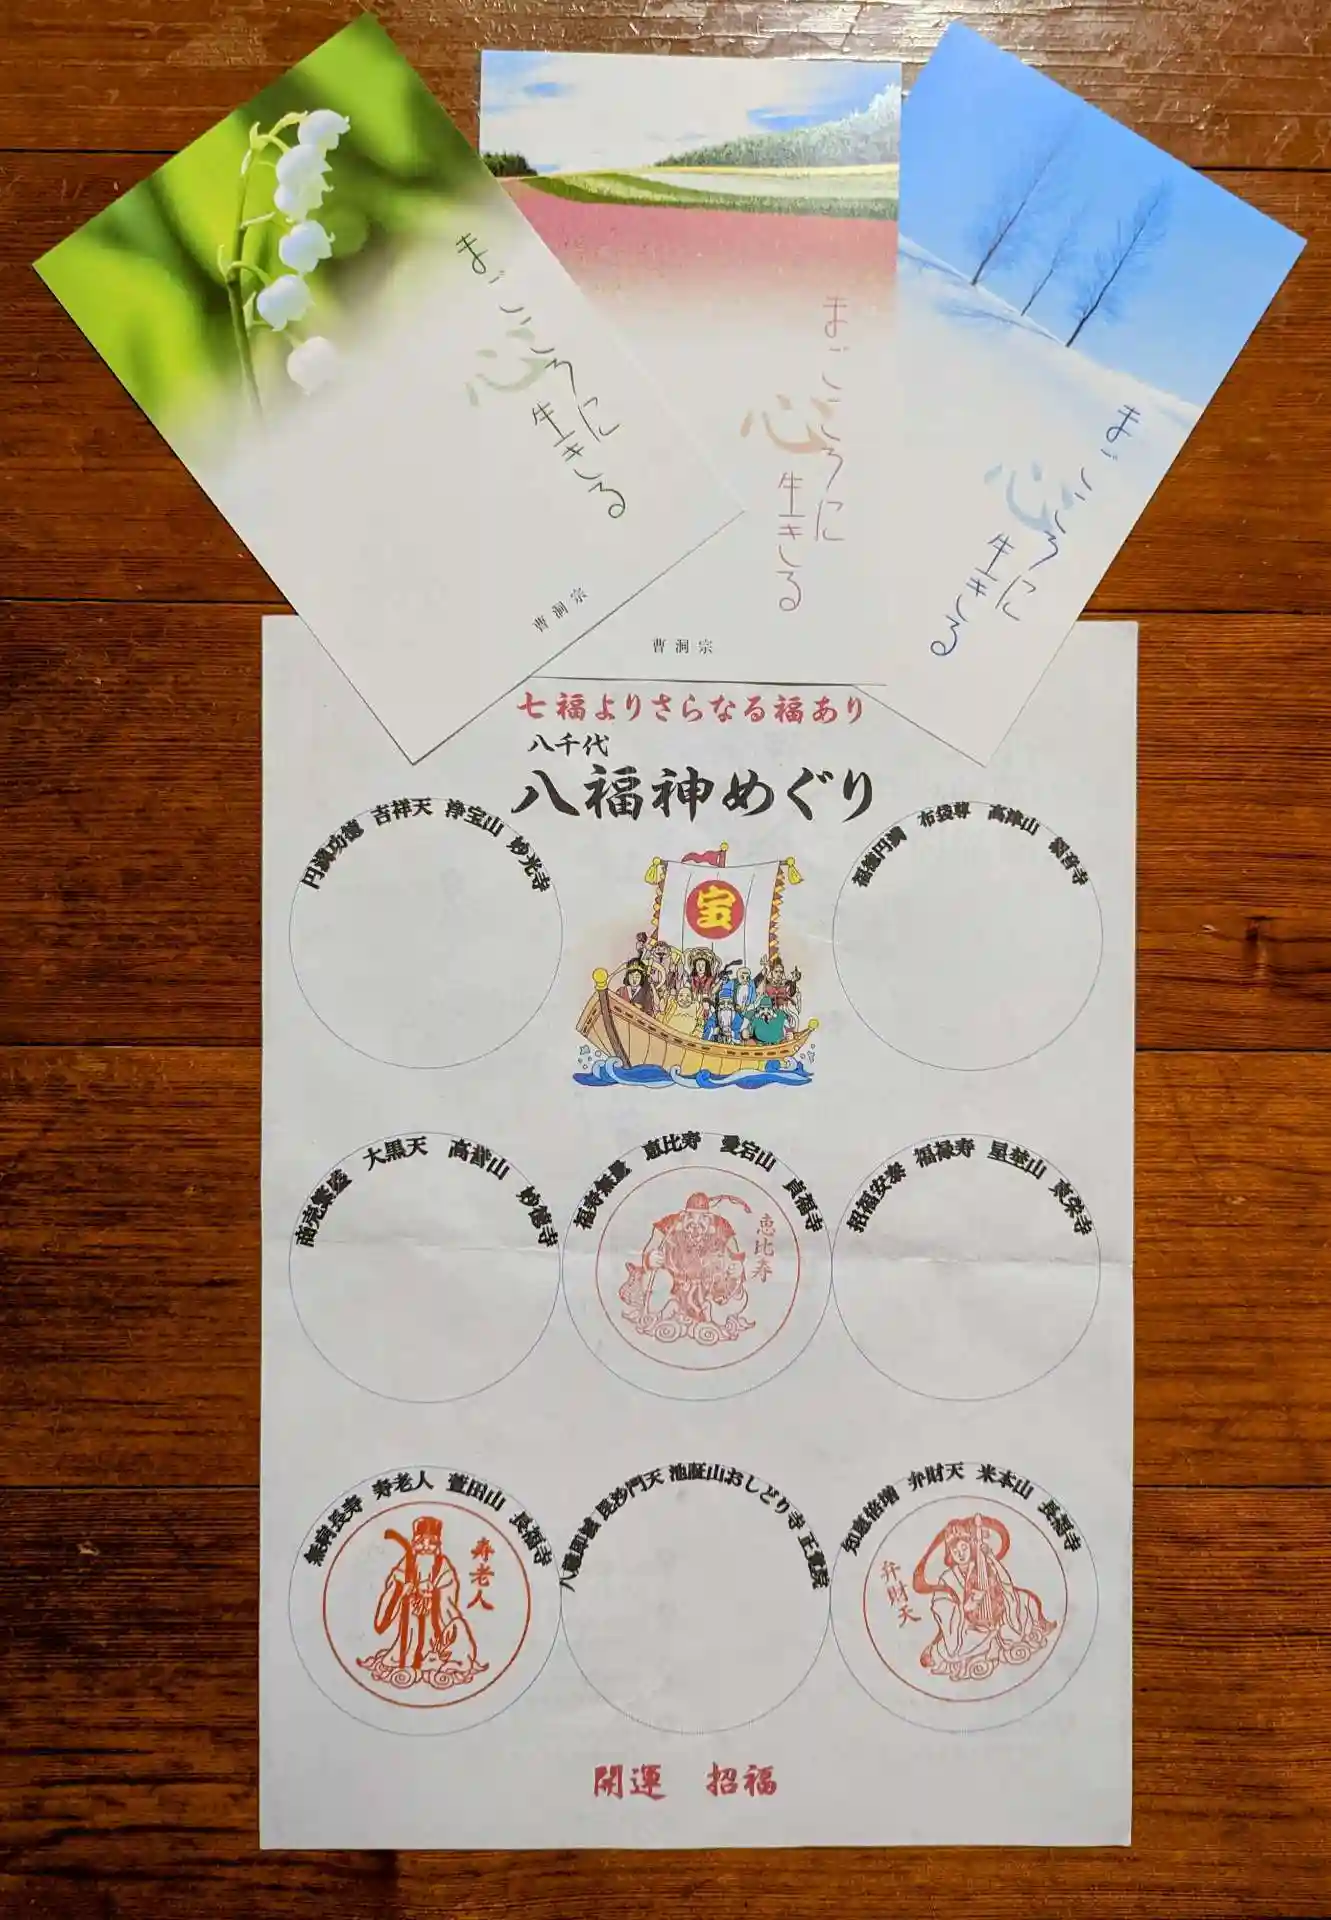 まごころに
生きる
心
曹洞宗
まごころに
生きる
心
曹洞宗
まごころに
生きる
心
七福よりさらなる福あり
八千代
八福神めぐり
円満功徳 吉祥天 浄宝山 妙光寺
宝
福徳円満 布袋尊 高津山 観音寺
商売繁盛 大黒天 高誉山 妙徳寺
福寿無量 恵比寿 愛宕山 貞福寺
恵比寿
招福安泰 福禄寿 星埜山 東栄寺
無病長寿 寿老人 萱田山 長福寺
寿老人
八難即滅 毘沙門天 池証山おしどり寺 正覚院
知恵倍増 弁財天 米本山 長福寺
弁財天
開運 招福